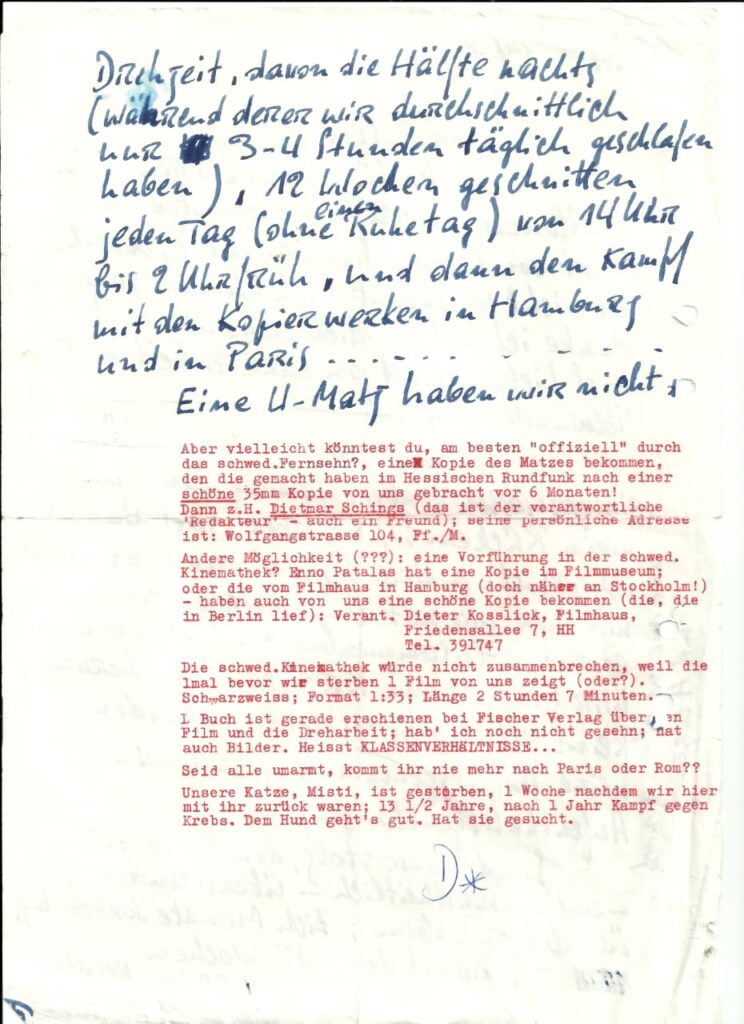 Drehzeit, davon die Hälfte nachts
(während derer wir durchschnittlich
nur 3-4 Stunden täglich geschlafen
haben), 12 Wochen geschnitten
jeden Tag (ohne einen Ruhetag) von 14 Uhr
bis 2 Uhr früh, und dann den Kampf
mit den Kopierwerken in Hamburg
und in Paris . . . . . . . . .
Eine U-Matz haben wir nicht.
Aber vielleicht könntest du, am besten "offiziell" durch
das schwed.Fernsehn?, eine Kopie des Matzes bekommen,
den die gemacht haben im Hessischen Rundfunk nach einer
schöne 35mm Kopie von uns gebracht vor 6 Monaten!
Dann z.H. Dietmar Schings (das ist der verantwortliche
'Redakteur' - auch ein Freund); seine persönliche Adresse
ist: Wolfgangstrasse 104, Fr./M.
Andere Möglichkeit (???): eine Vorführung in der schwed.
Kinemathek? Enno Patalas hat eine Kopie im Filmmuseum;
oder die vom Filmhaus in Hamburg (doch näher an Stockholm!)
- haben auch von uns eine schöne Kopie bekommen (die, die
in Berlin lief): Verant. Dieter Kosslick, Filmhaus,
Friedensallee 7, HH
Tel. 391747
Die schwed.Kinemathek würde nicht zusammenbrechen, weil die
1mal bevor wir sterben 1 Film von uns zeigt (oder?).
Schwarzweiss; Format 1:33; Länge 2 Stunden 7 Minuten.
1 Buch ist gerade erschienen bei Fischer Verlag über, en
Film und die Dreharbeit; hab' ich noch nicht gesehn; hat
auch Bilder. Heisst KLASSENVERHÄLTNISSE...
Seid alle umarmt, kommt ihr nie mehr nach Paris oder Rom??
Unsere Katze, Misti, ist gestorben, 1 Woche nachdem wir hier
mit ihr zurück waren; 13 1/2 Jahre, nach 1 Jahr Kampf gegen
Krebs. Dem Hund geht's gut. Hat sie gesucht.
D*